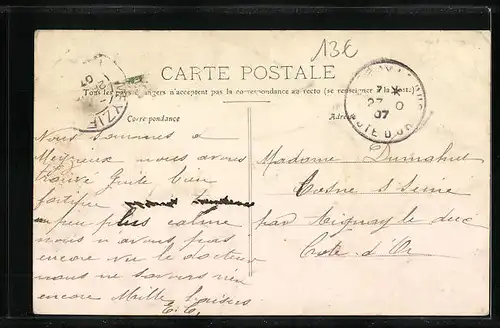 13€
CARTE POSTALE
Tous les pays étrangers n'acceptent pas la correspondance au recto (se renseigner à la Poste)
Correspondance
Adresse
MEYZIEU
07
7 *
27 O
07
COTE D'OR
Nous sommes a
Meyzieux nous avons
trouvé Guite bien
fortifiée
un peu plus calme
nous n avons pas
encore vu le docteur
nous ne savons rien
encore Mille baisers
E. C.
Madame Dumahut
Cosne s/ Seine
par Aignay le duc
Cote d'Or